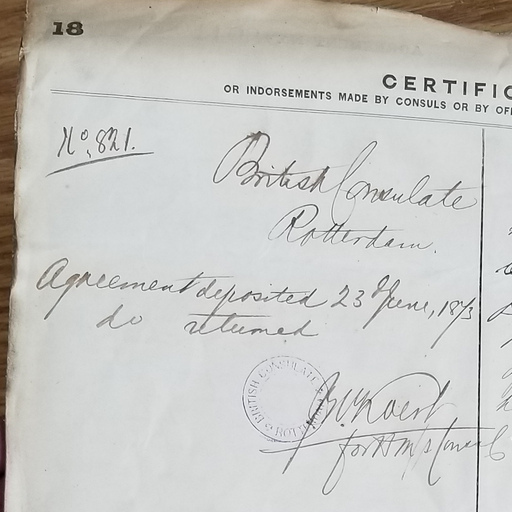 18
CERTIFIC
OR INDORSEMENTS MADE BY CONSULS OR BY OF
No. 821.
British Consulate
Rotterdam.
Agreement deposited 23 June, 1873
do returned
BRITISH CONSULATE
for H M's Consul